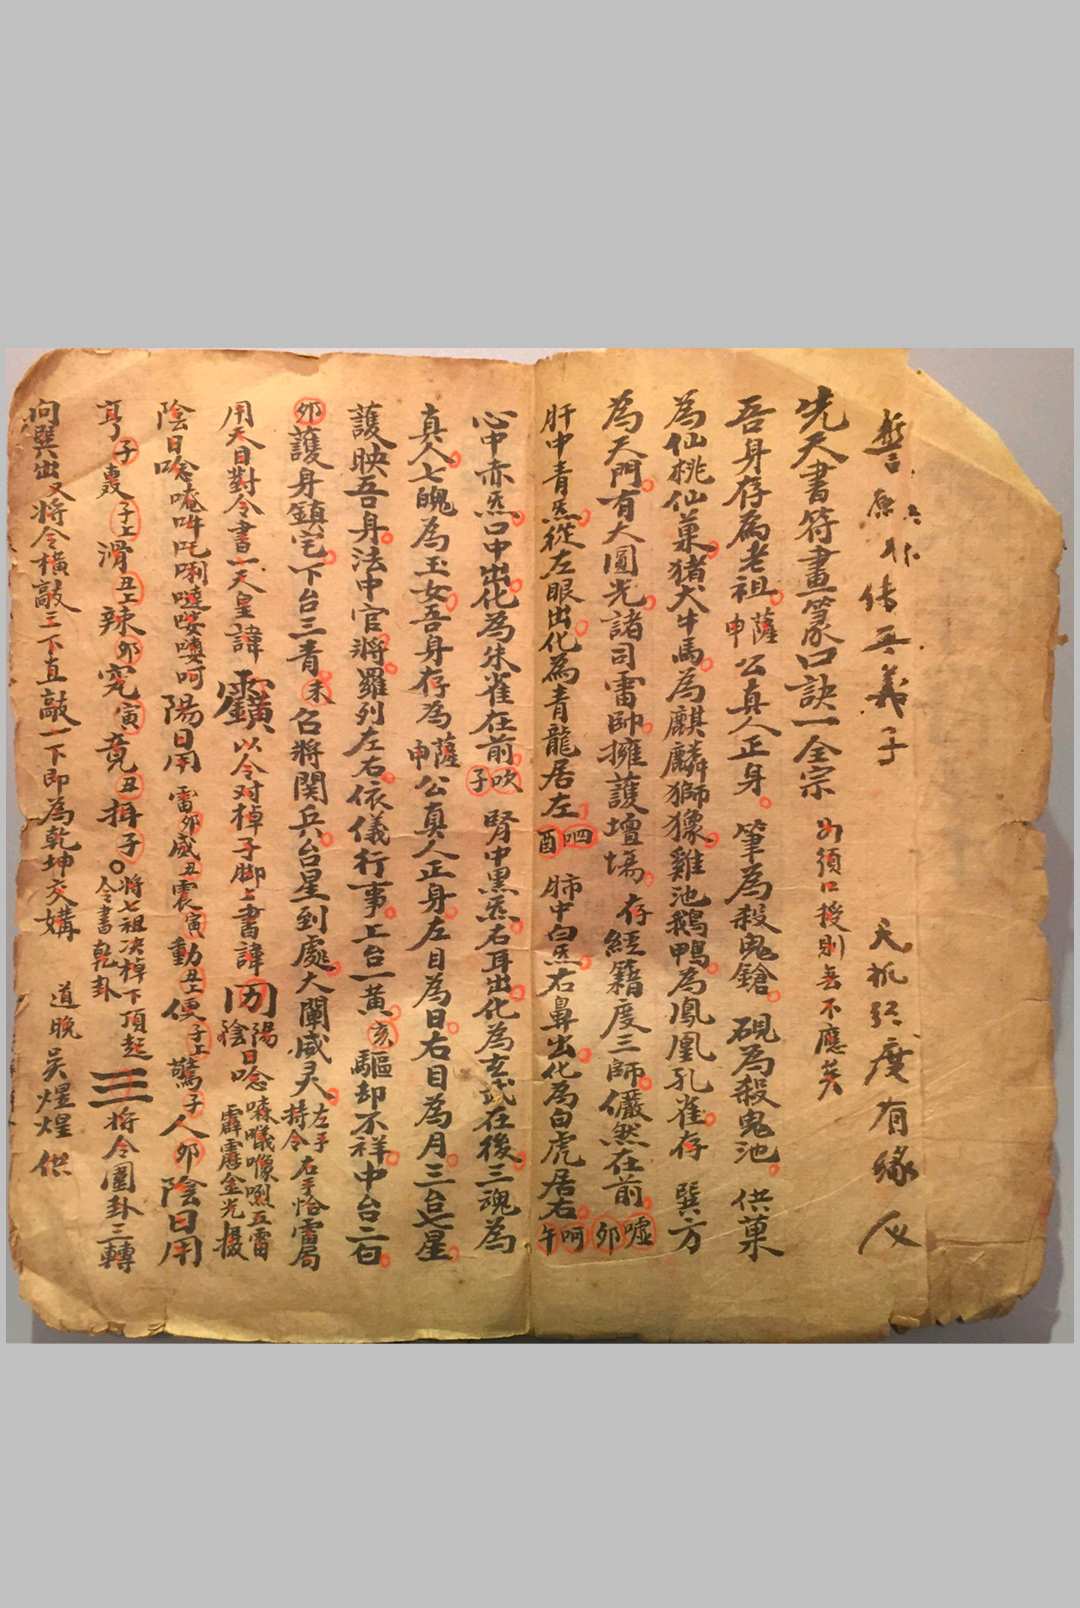 誓原八不传無義子 天机终度有緣人
先天書符畫篆口訣一全宗 必須口授則無不應矣
吾身存為老祖薩申公真人正身筆為殺鬼鎗硯為殺鬼池供菓
為仙桃仙菓猪犬牛馬為麒麟獅獴雞池鵝鴨為鳳凰孔雀存巽方
為天門有大圓光諸司雷帥擁護壇塲存經籍度三師儼然在前噓卯
肝中青炁從左眼出化為青龍居左呬酉肺中白炁右鼻出化為白虎居右呵午
心中赤炁口中出化為朱雀在前吹子腎中黑炁右耳出化為玄武在後三魂為
真人七魄為玉女吾身存為薩申公真人正身左目為日右目為月三台七星
護映吾身法中官將羅列左右依儀行事上台一黃亥驅却不祥中台二白
卯護身鎮宅下台三青未召將関兵台星到處大闡威灵左手持令右手恰雷局
用天目對令書一天皇諱以令对棹子脚上書諱囘陽日唸嚥㘈喙唎五雷陰霹靂金光摄
陰日唸唵吽吒唎噠㖠嘙呵陽日用雷卯威丑震寅動丑工便子工驚子人卯陰日用
亨子轟子工滑丑工辣卯究寅竟丑揖子將七祖决棹下頂起令書乾卦☰將令圈卦三轉
向巽出又將令橫敲三下直敲一下即為乾坤交媾 道晚吳煜煌供